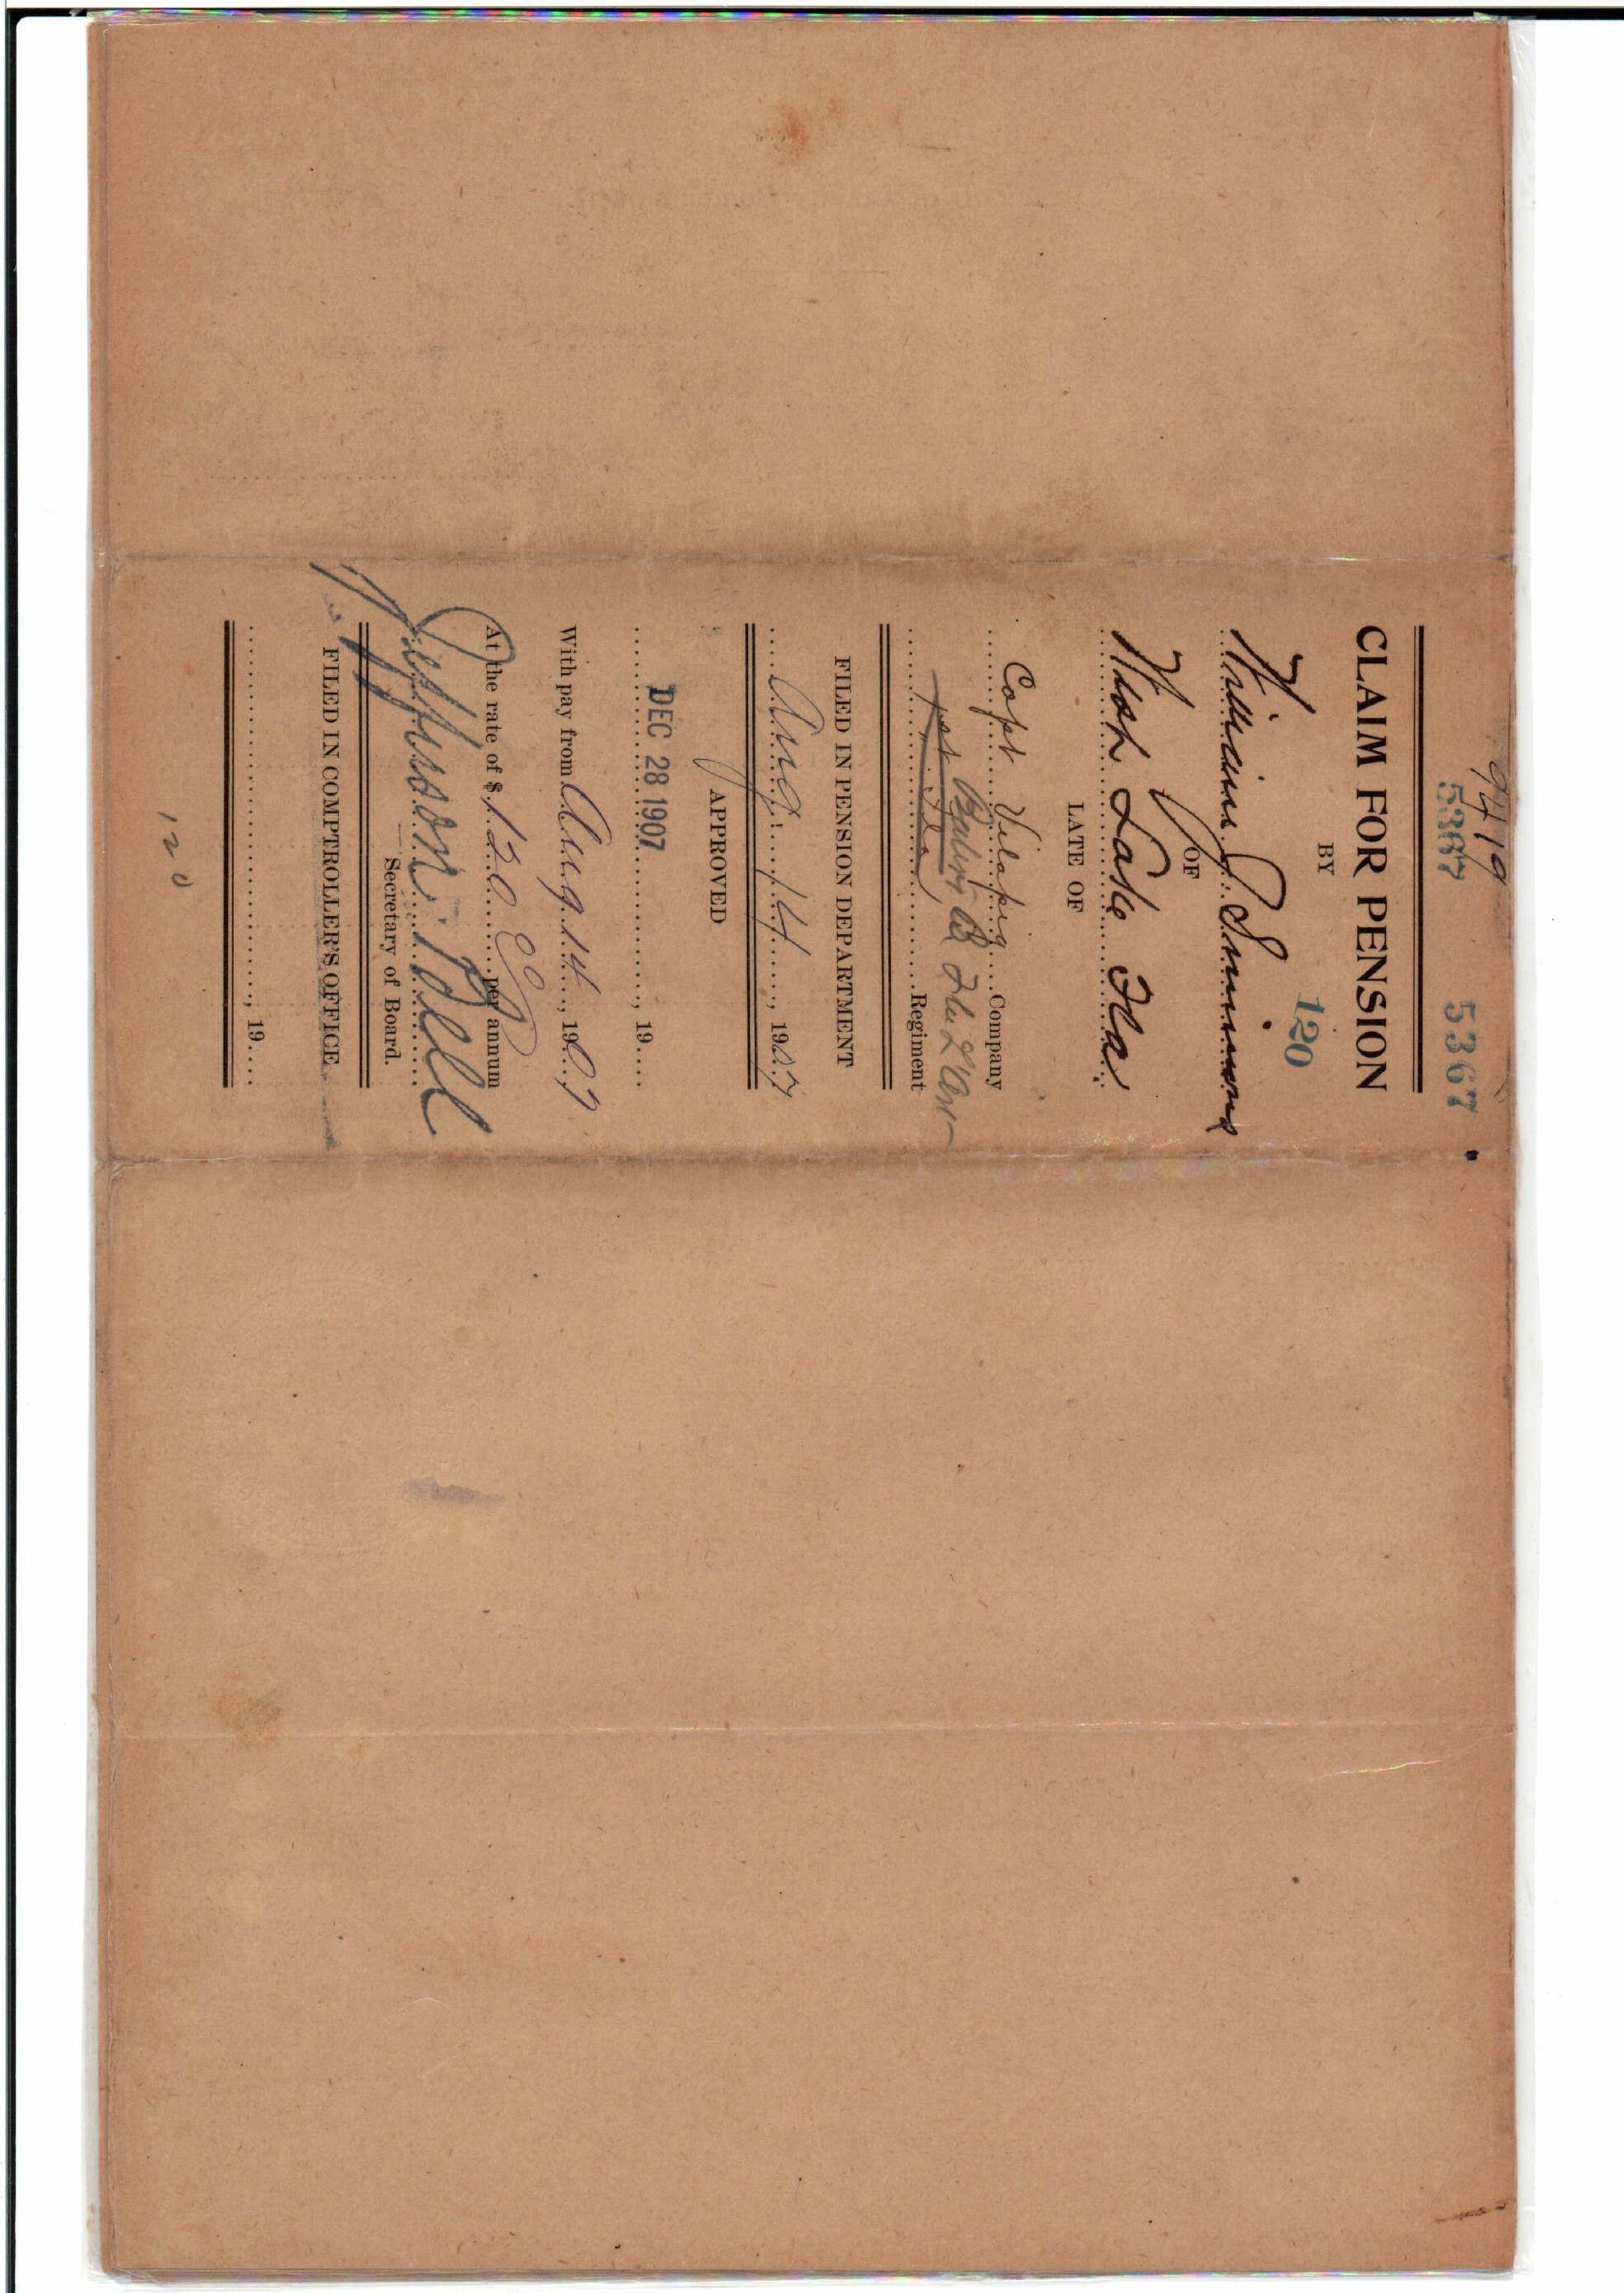 9419
5367 5367
CLAIM FOR PENSION
BY
120
William J. Simmons
OF
Wish Lake Fla
LATE OF
Capt Company
1st Fla B Regiment
FILED IN PENSION DEPARTMENT
Aug. 14, 1907
APPROVED
DEC 28 1907, 19
With pay from Aug 14, 1907
At the rate of $ 120 00 per annum
Jefferson Bell
Secretary of Board.
FILED IN COMPTROLLER'S OFFICE
, 19
120